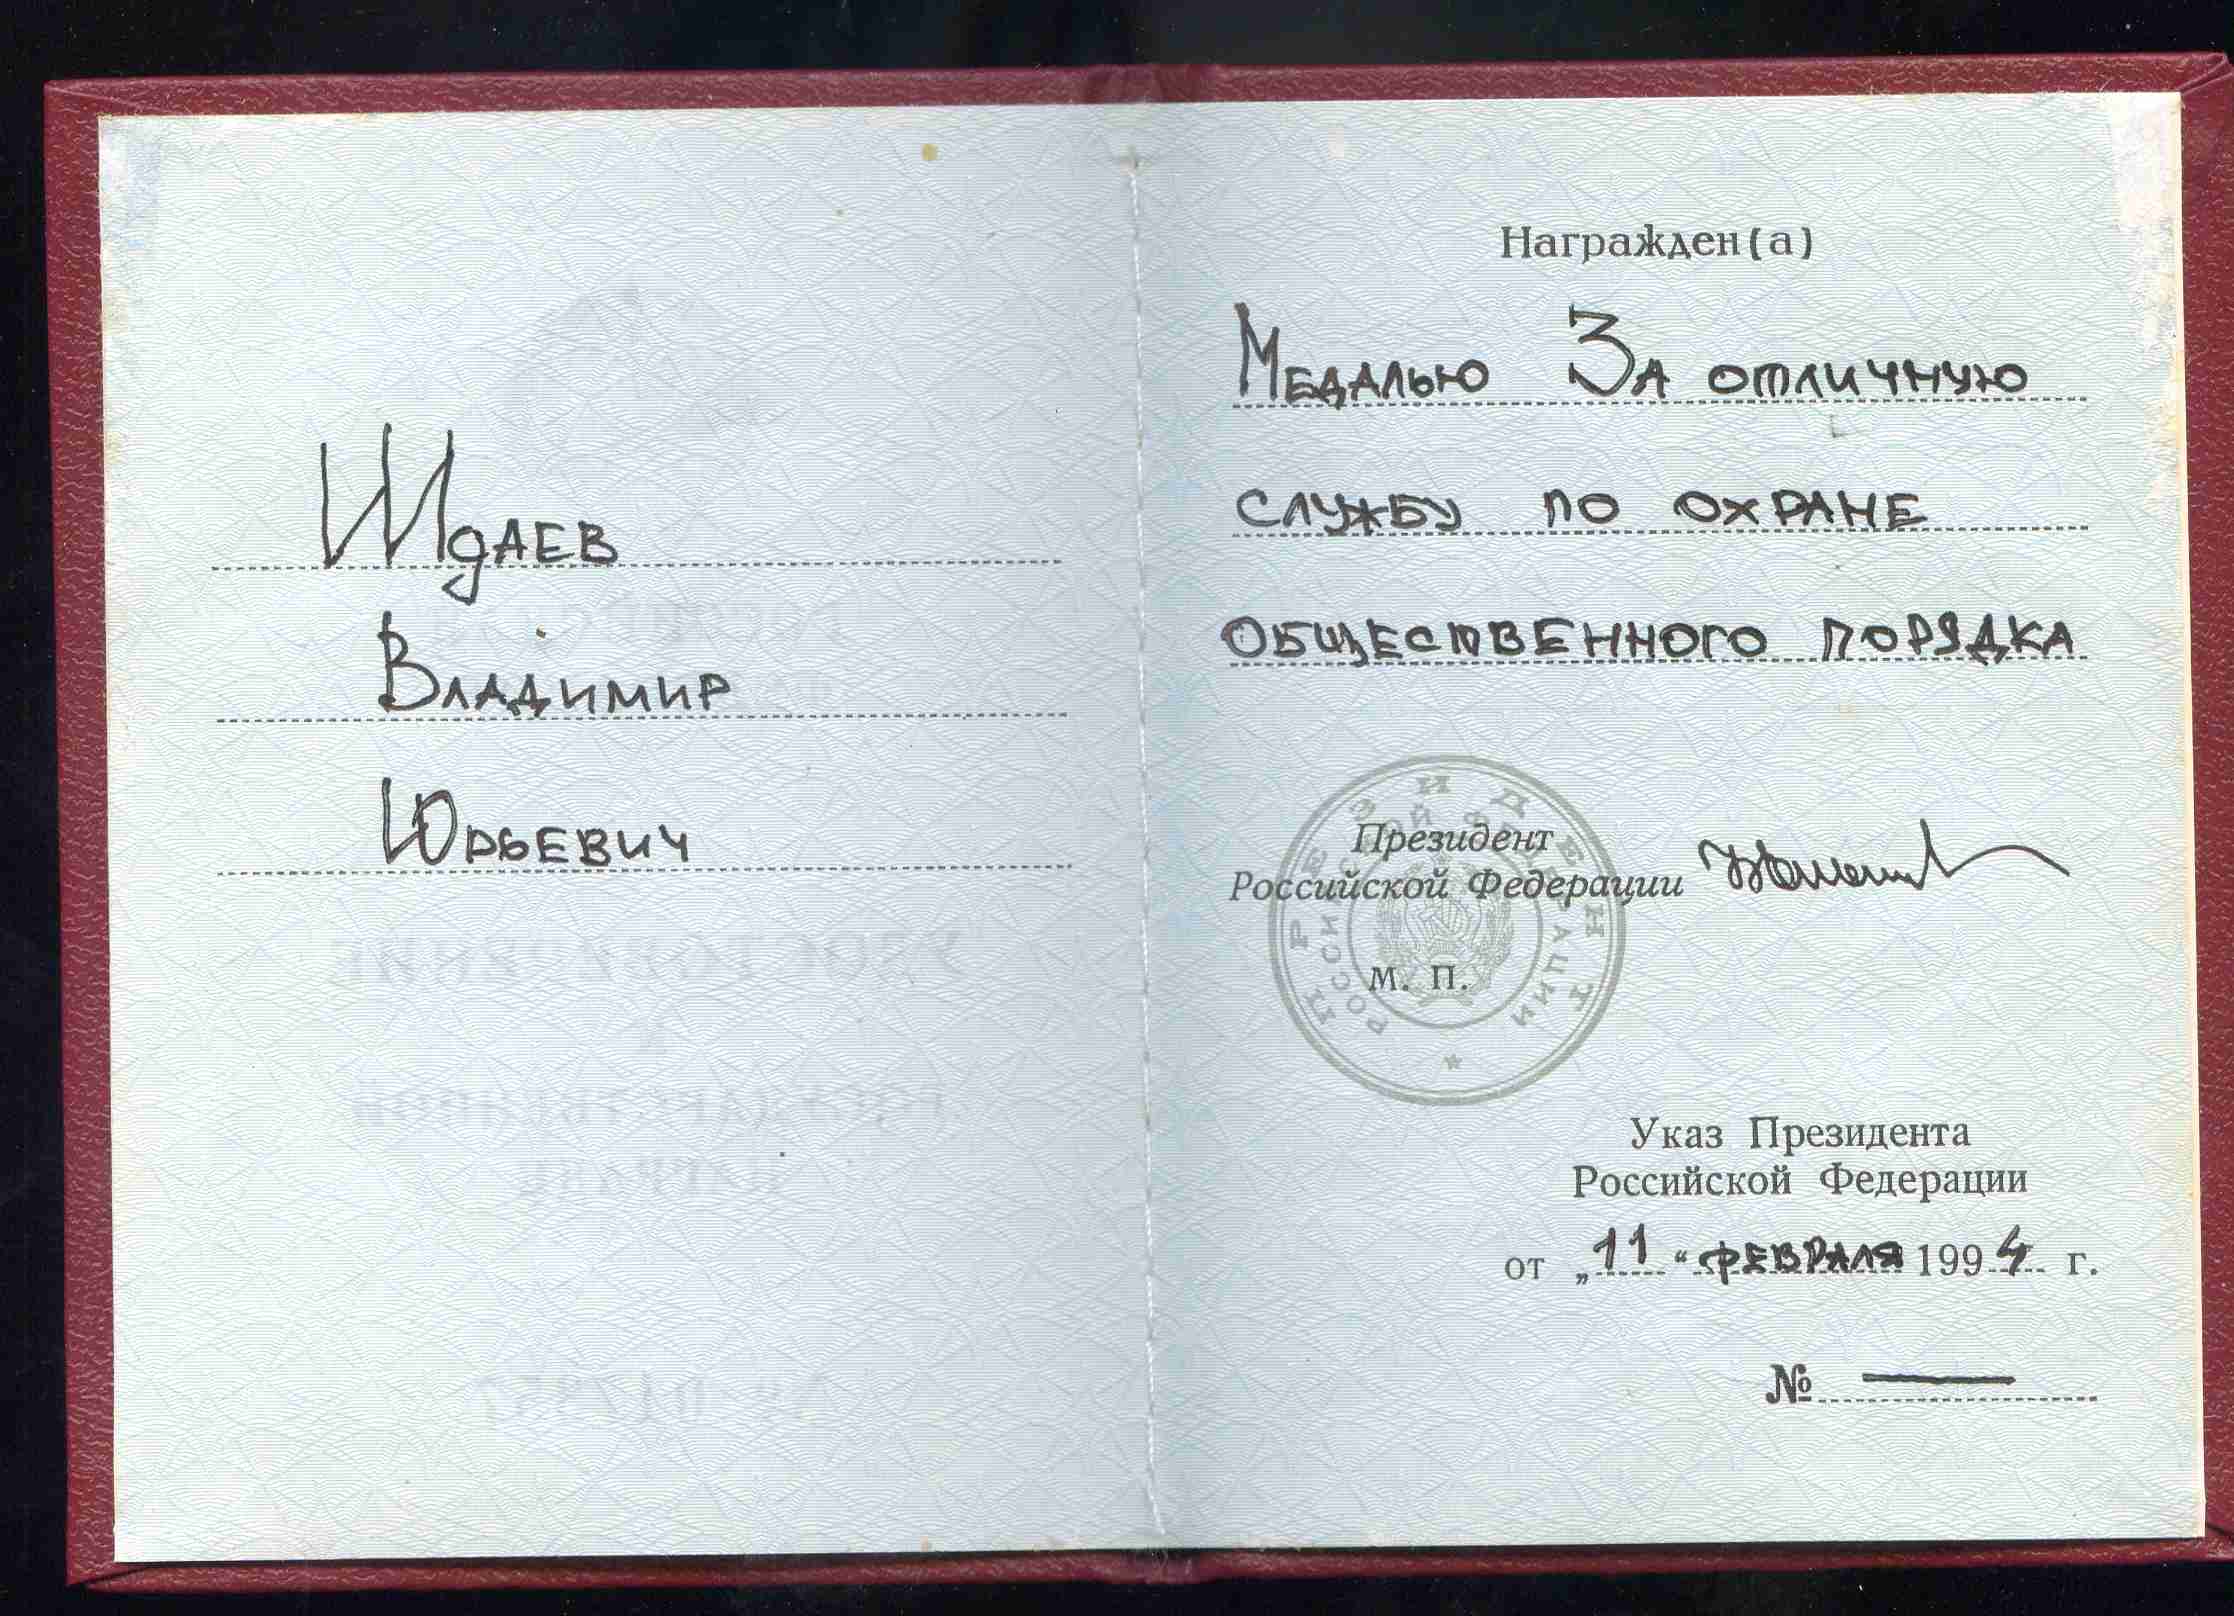 Шдаев
Владимир
Юрьевич
Награжден(а)
Медалью За отличную
службу по охране
общественного порядка
Президент
Российской Федерации
М. П.
ПРЕЗИДЕНТ
РОССИЙСКОЙ ФЕДЕРАЦИИ
Указ Президента
Российской Федерации
от „11“ февраля 1994 г.
№ —